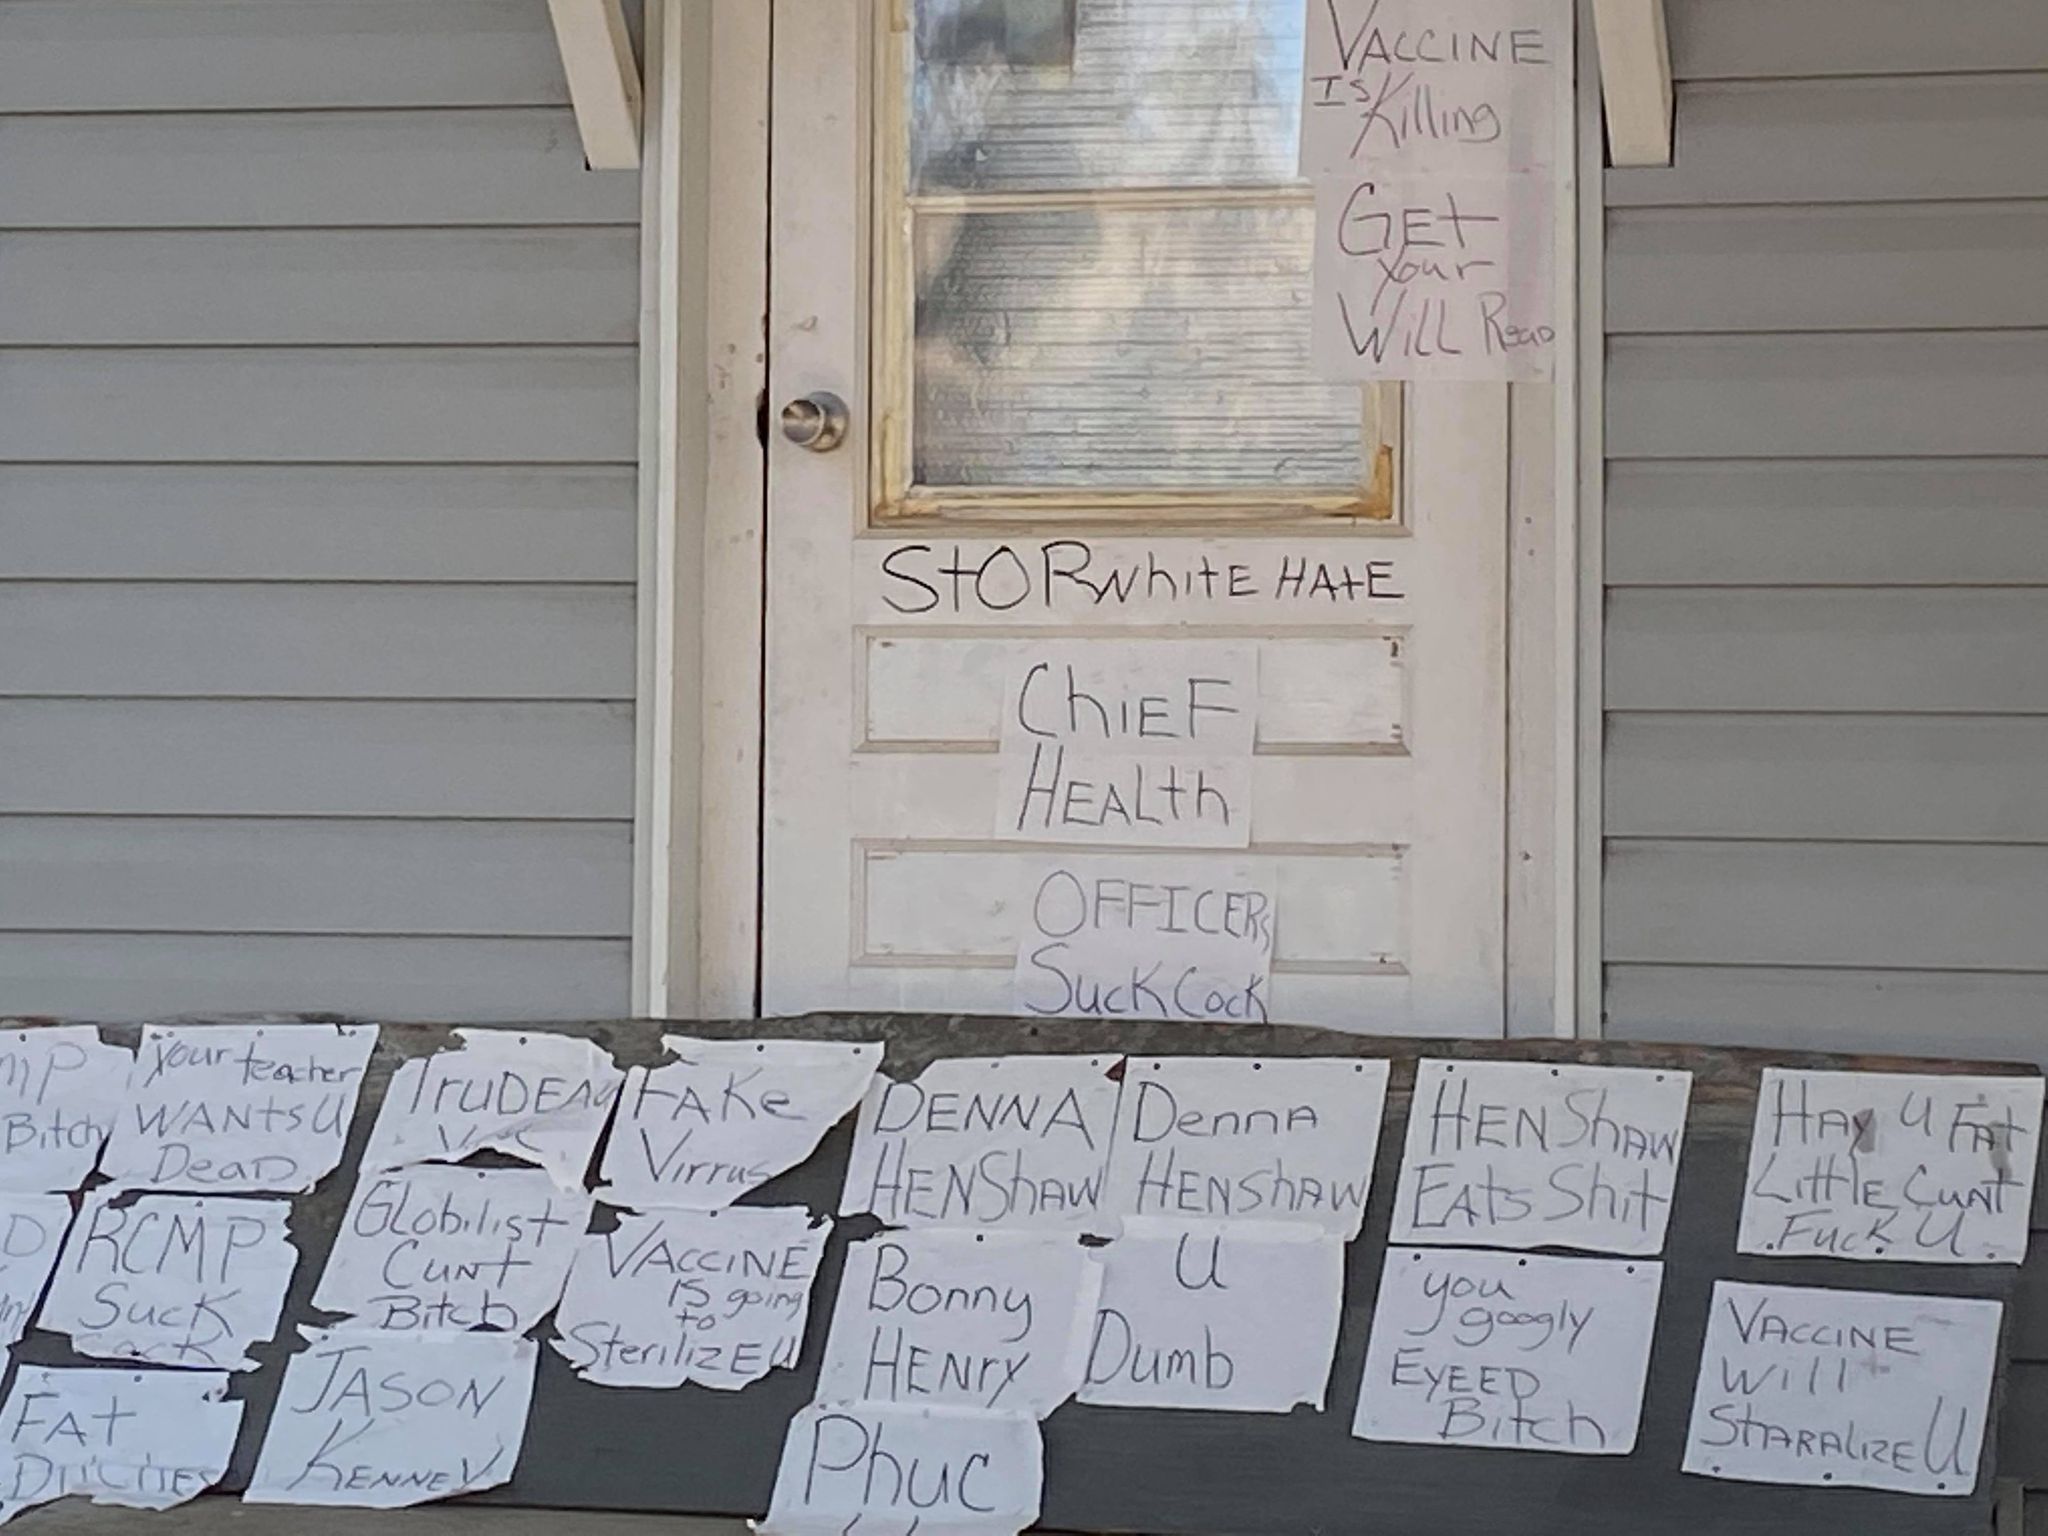 VACCINE
IS Killing
GEt
Your
WiLL READ
StOP WhitE HAtE
ChiEF
HEALth
OFFICERs
SuckCock
MP
Bitch
Your teacher
WANtS U
DeaD
TruDEAU
FAKe
Virrus
DENNA
HENShAW
Denna
HENShAW
HENShAW
EAts Shit
HAY U FAt
LittlE Cunt
Fuck U
D
RCMP
Suck
GLobiList
Cunt
Bitch
VACCiNE
IS going
to
SteriLizE U
Bonny
HENrY
U
Dumb
you
googly
EYEED
Bitch
VACCiNE
Will
StARALizE U
FAt
JASON
KENNEY
Phuc